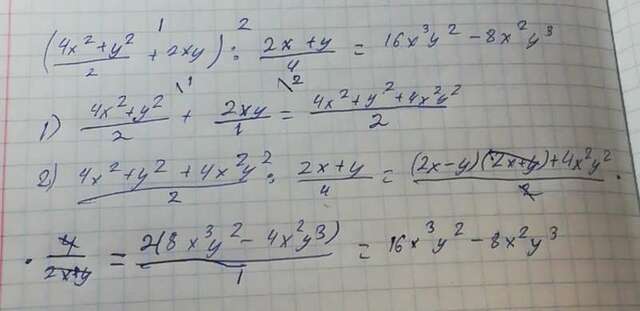 (4x²+y²/2 + 2xy) : 2x+y/4 = 16x³y² - 8x²y³
1) 4x²+y²/2 + 2xy/1 = 4x²+y²+4x²y²/2
2) 4x²+y²+4x²y²/2 : 2x+y/4 = (2x-y)(2x+y)+4x²y²/2 ·
· 4/2x+y = 2(8x³y² - 4x²y³)/1 = 16x³y² - 8x²y³